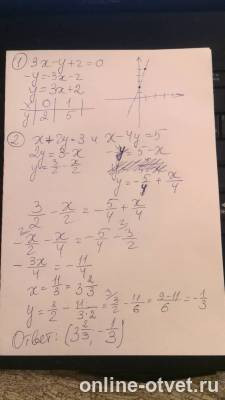 1) 3x-y+2=0
-y=-3x-2
y=3x+2
x | 0 | 1
y | 2 | 5
2) x+2y=3 и x-4y=5
2y=3-x
y=5-x
y=3/2-x/2
y=-5/4+x/4
3/2-x/2=-5/4+x/4
-x/2-x/4=-5/4-3/2
-3x/4=-11/4
x=11/3=3 2/3
y=3/2-11/3·2=3/2-11/6=9-11/6=-1/3
Ответ: (3 2/3, -1/3)
online-otvet.ru